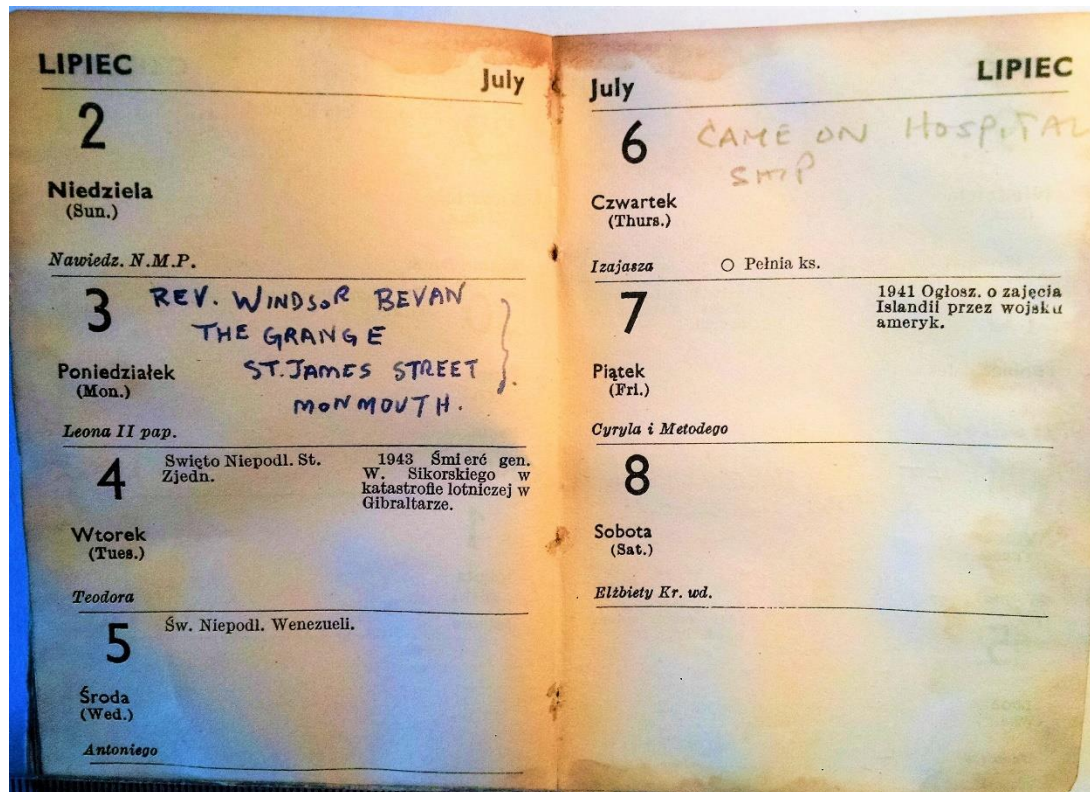 LIPIEC
July
2
Niedziela
(Sun.)
Nawiedz. N.M.P.
3
REV. WINDSOR BEVAN
THE GRANGE
ST. JAMES STREET
MONMOUTH.
Poniedziałek
(Mon.)
Leona II pap.
4
Swięto Niepodl. St.
Zjedn.
1943 Śmierć gen.
W. Sikorskiego w
katastrofie lotniczej w
Gibraltarze.
Wtorek
(Tues.)
Teodora
5
Św. Niepodl. Wenezueli.
Środa
(Wed.)
Antoniego
July
LIPIEC
6
CAME ON HOSPITAL
SHIP
Czwartek
(Thurs.)
Izajasza
○ Pełnia ks.
7
1941 Ogłosz. o zajęcia
Islandii przez wojsku
ameryk.
Piątek
(Fri.)
Cyryla i Metodego
8
Sobota
(Sat.)
Elżbiety Kr. wd.